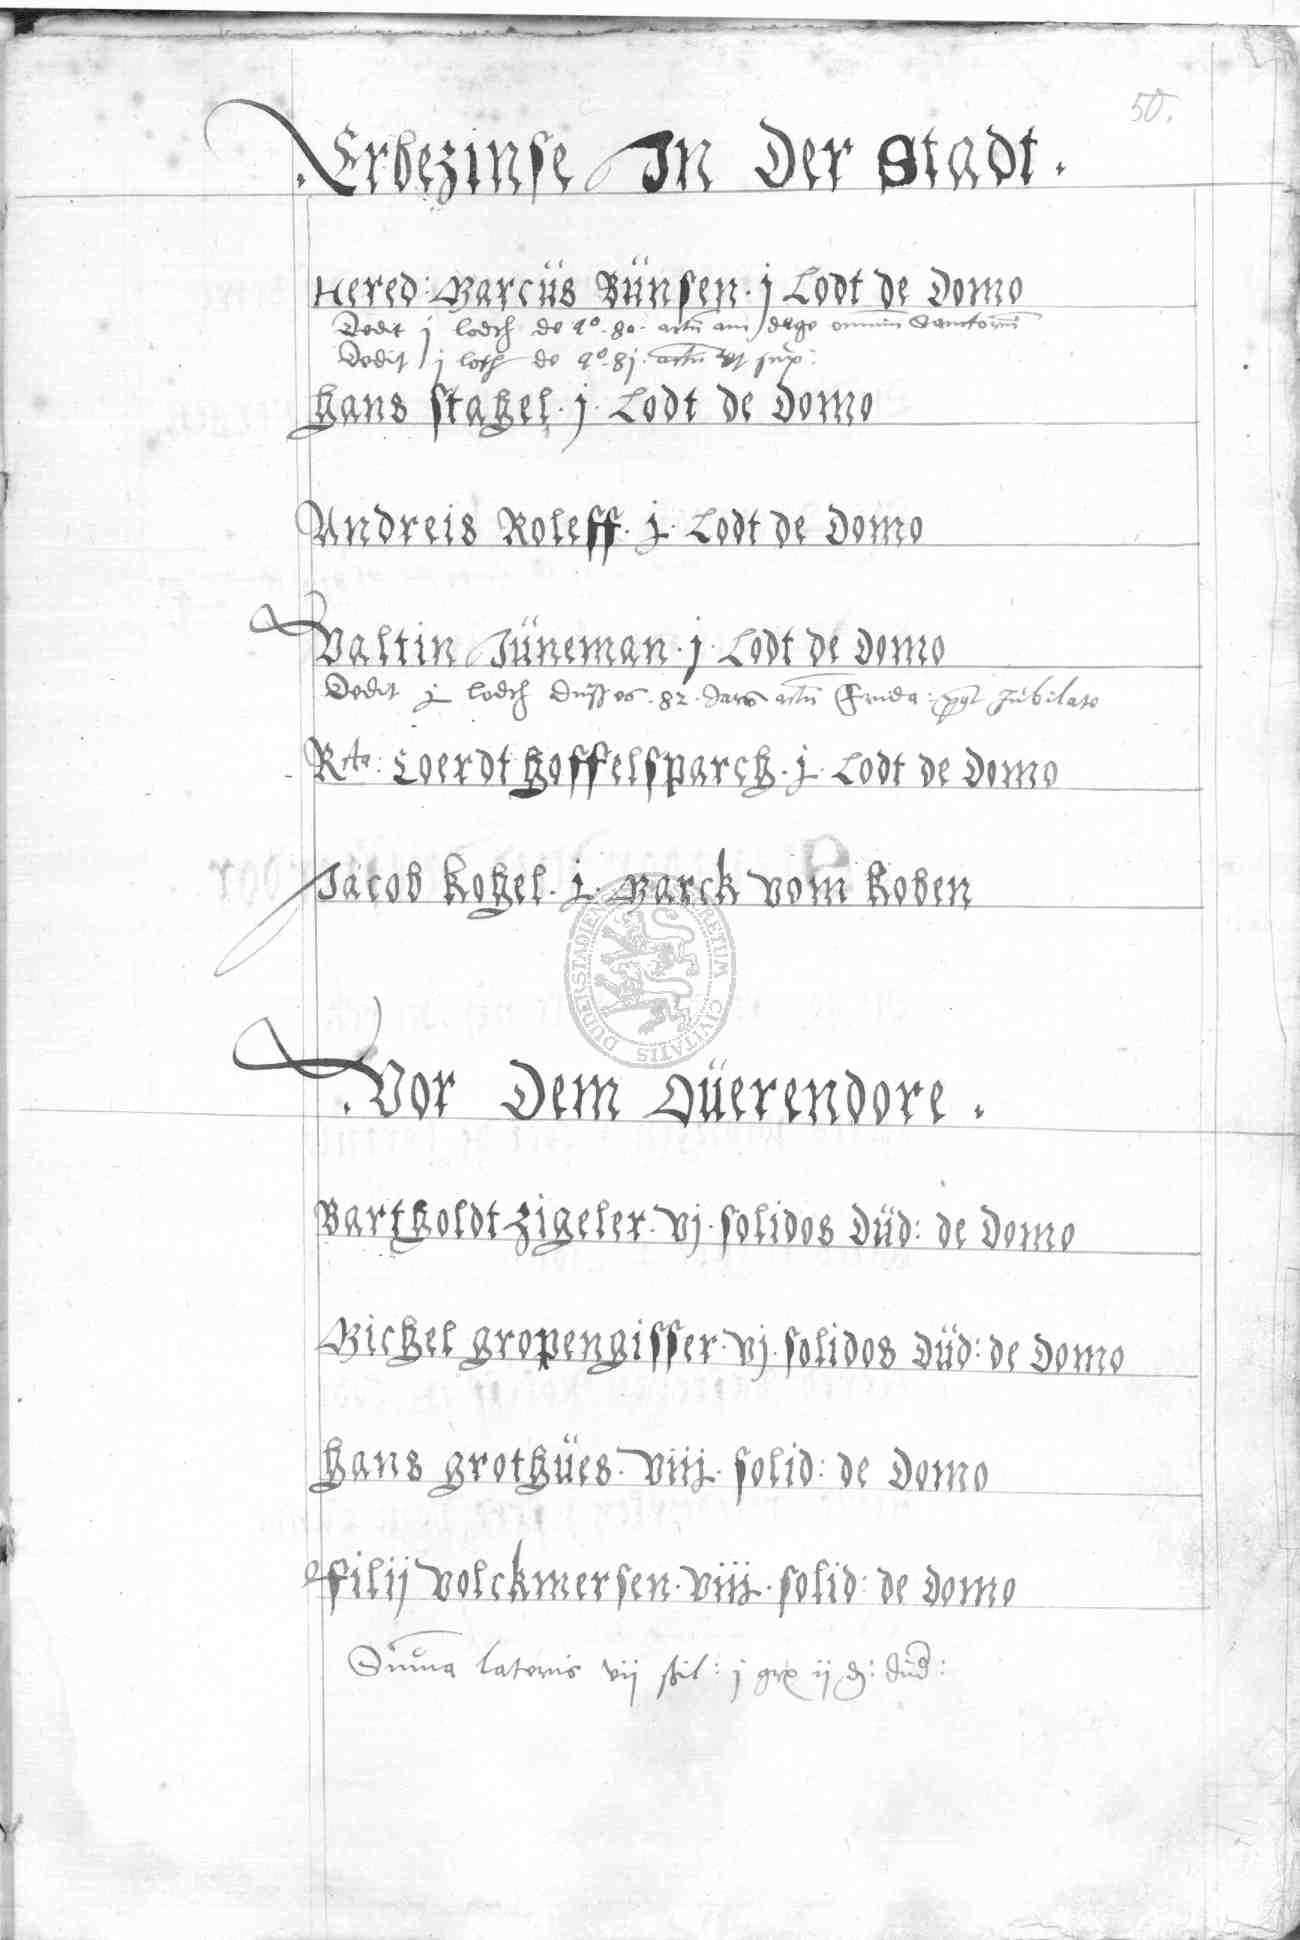 50.
. Erbezinse In Der Stadt .
Hered: Marcüs Bünsen · j Lodt de Domo
Dedit j lodth de ao · 80 · actū am dage omniū Sanctorū
Dedit j loth de ao · 81 · actū ut sup:
Hans stahel · j · Lodt de Domo
Andreis Roleff · j · Lodt de Domo
Valtin Jüneman · j · Lodt de Domo
Dedit j lodth dusses · 82 · Jars actū post Jubilate
Rcta: Coerdt Hoffelsparch · j · Lodt de Domo
Jacob Kohel · j · Marck vom Koben
DUDERSTADIEN CIVITATIS
. Vor Dem Oüerendore .
Bartholdt Zigeler · vj · solidos Düd: de Domo
Michel gropengisser · vj · solidos Düd: de Domo
Hans grothües · viij · solid: de Domo
filij Volckmersen · viij · solid: de Domo
Suma lateris vij ßil: j gr ij d: dud: